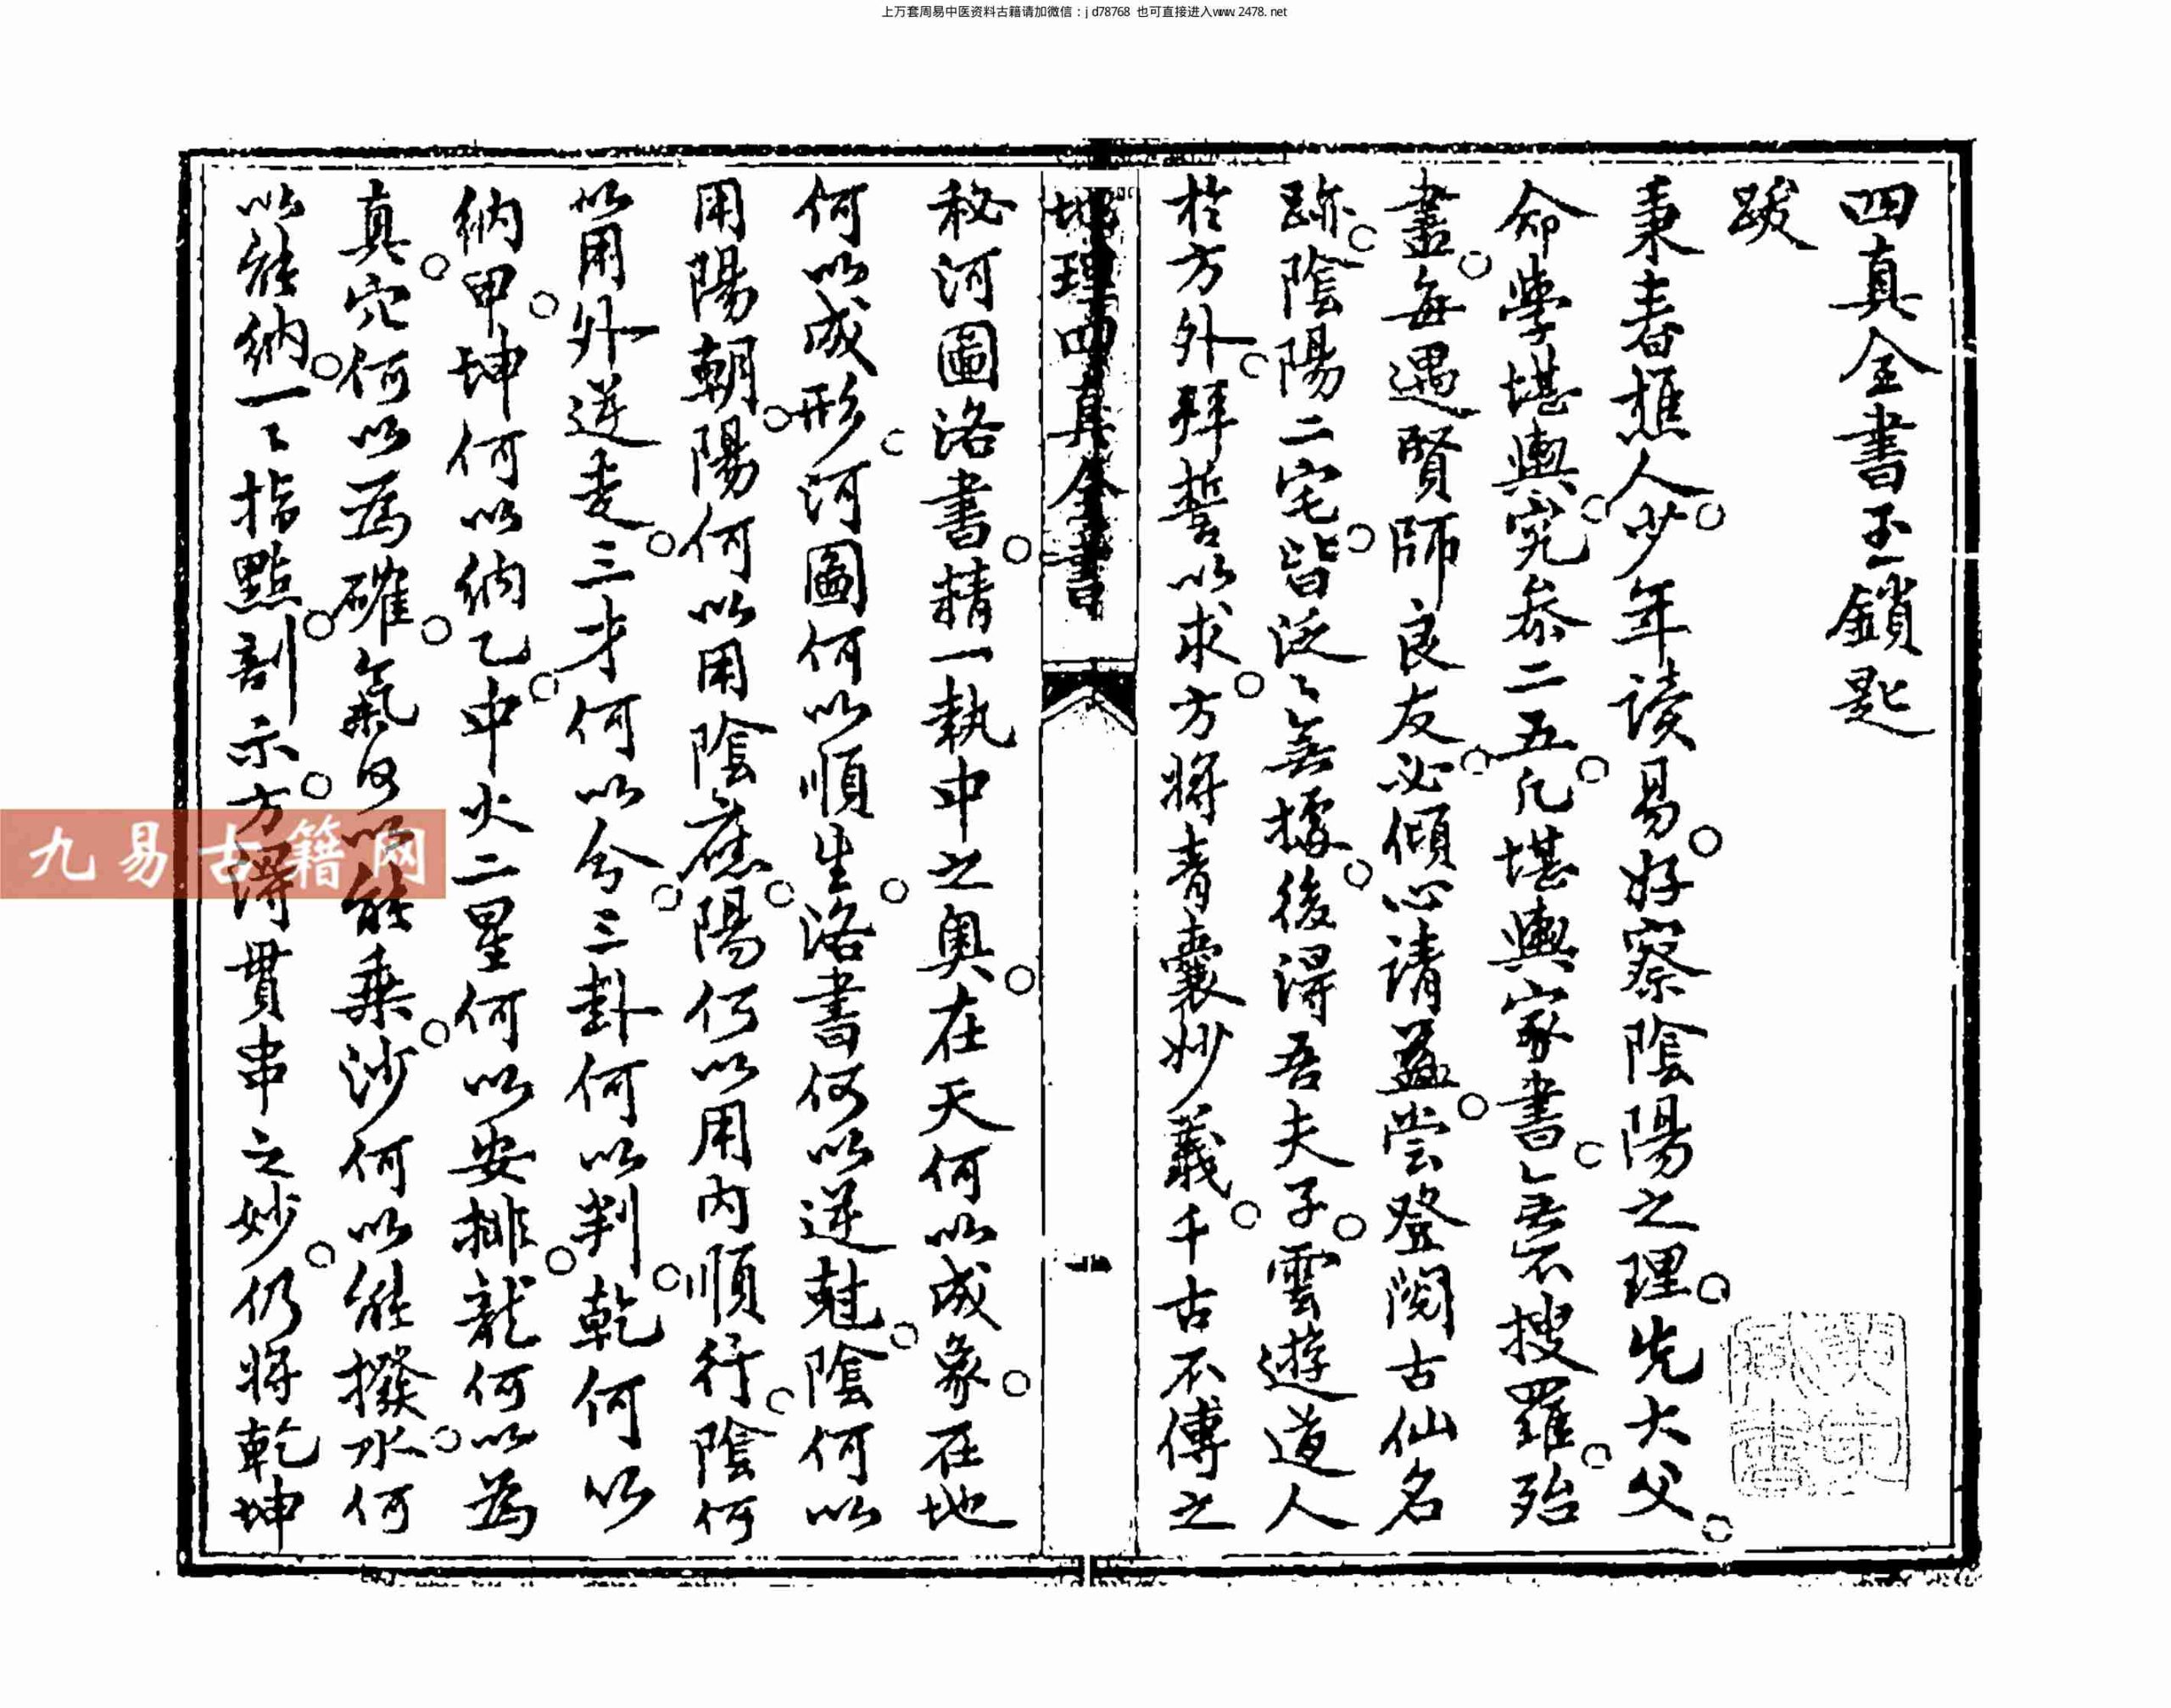 上万套周易中医资料古籍请加微信：jd78768 也可直接进入www.2478.net
四真全書玉鎖匙
跋
秉春樵人少年读易好察陰陽之理先大父
命學堪輿究叅二五凢堪輿家書無不搜羅殆
盡每遇賢師良友必傾心请益嘗登閱古仙名
跡陰陽二宅皆泛〻無據後得吾夫子雲遊道人
於方外拜誓以求方将青囊妙義千古不傳之
地理四真全書
秘河圖洛書精一執中之奥在天何以成象在地
何以成形河圖何以順生洛書何以逆尅陰何以
用陽朝陽何以用陰應陽何以用内順行陰何
以用外逆走三才何以分三卦何以判乾何以
納甲坤何以納乙中火二星何以安排龍何以為
真穴何以為確氣何以能乗沙何以能撥水何
以能納一〻指點剖示方得貫串之妙仍将乾坤
九易古籍网